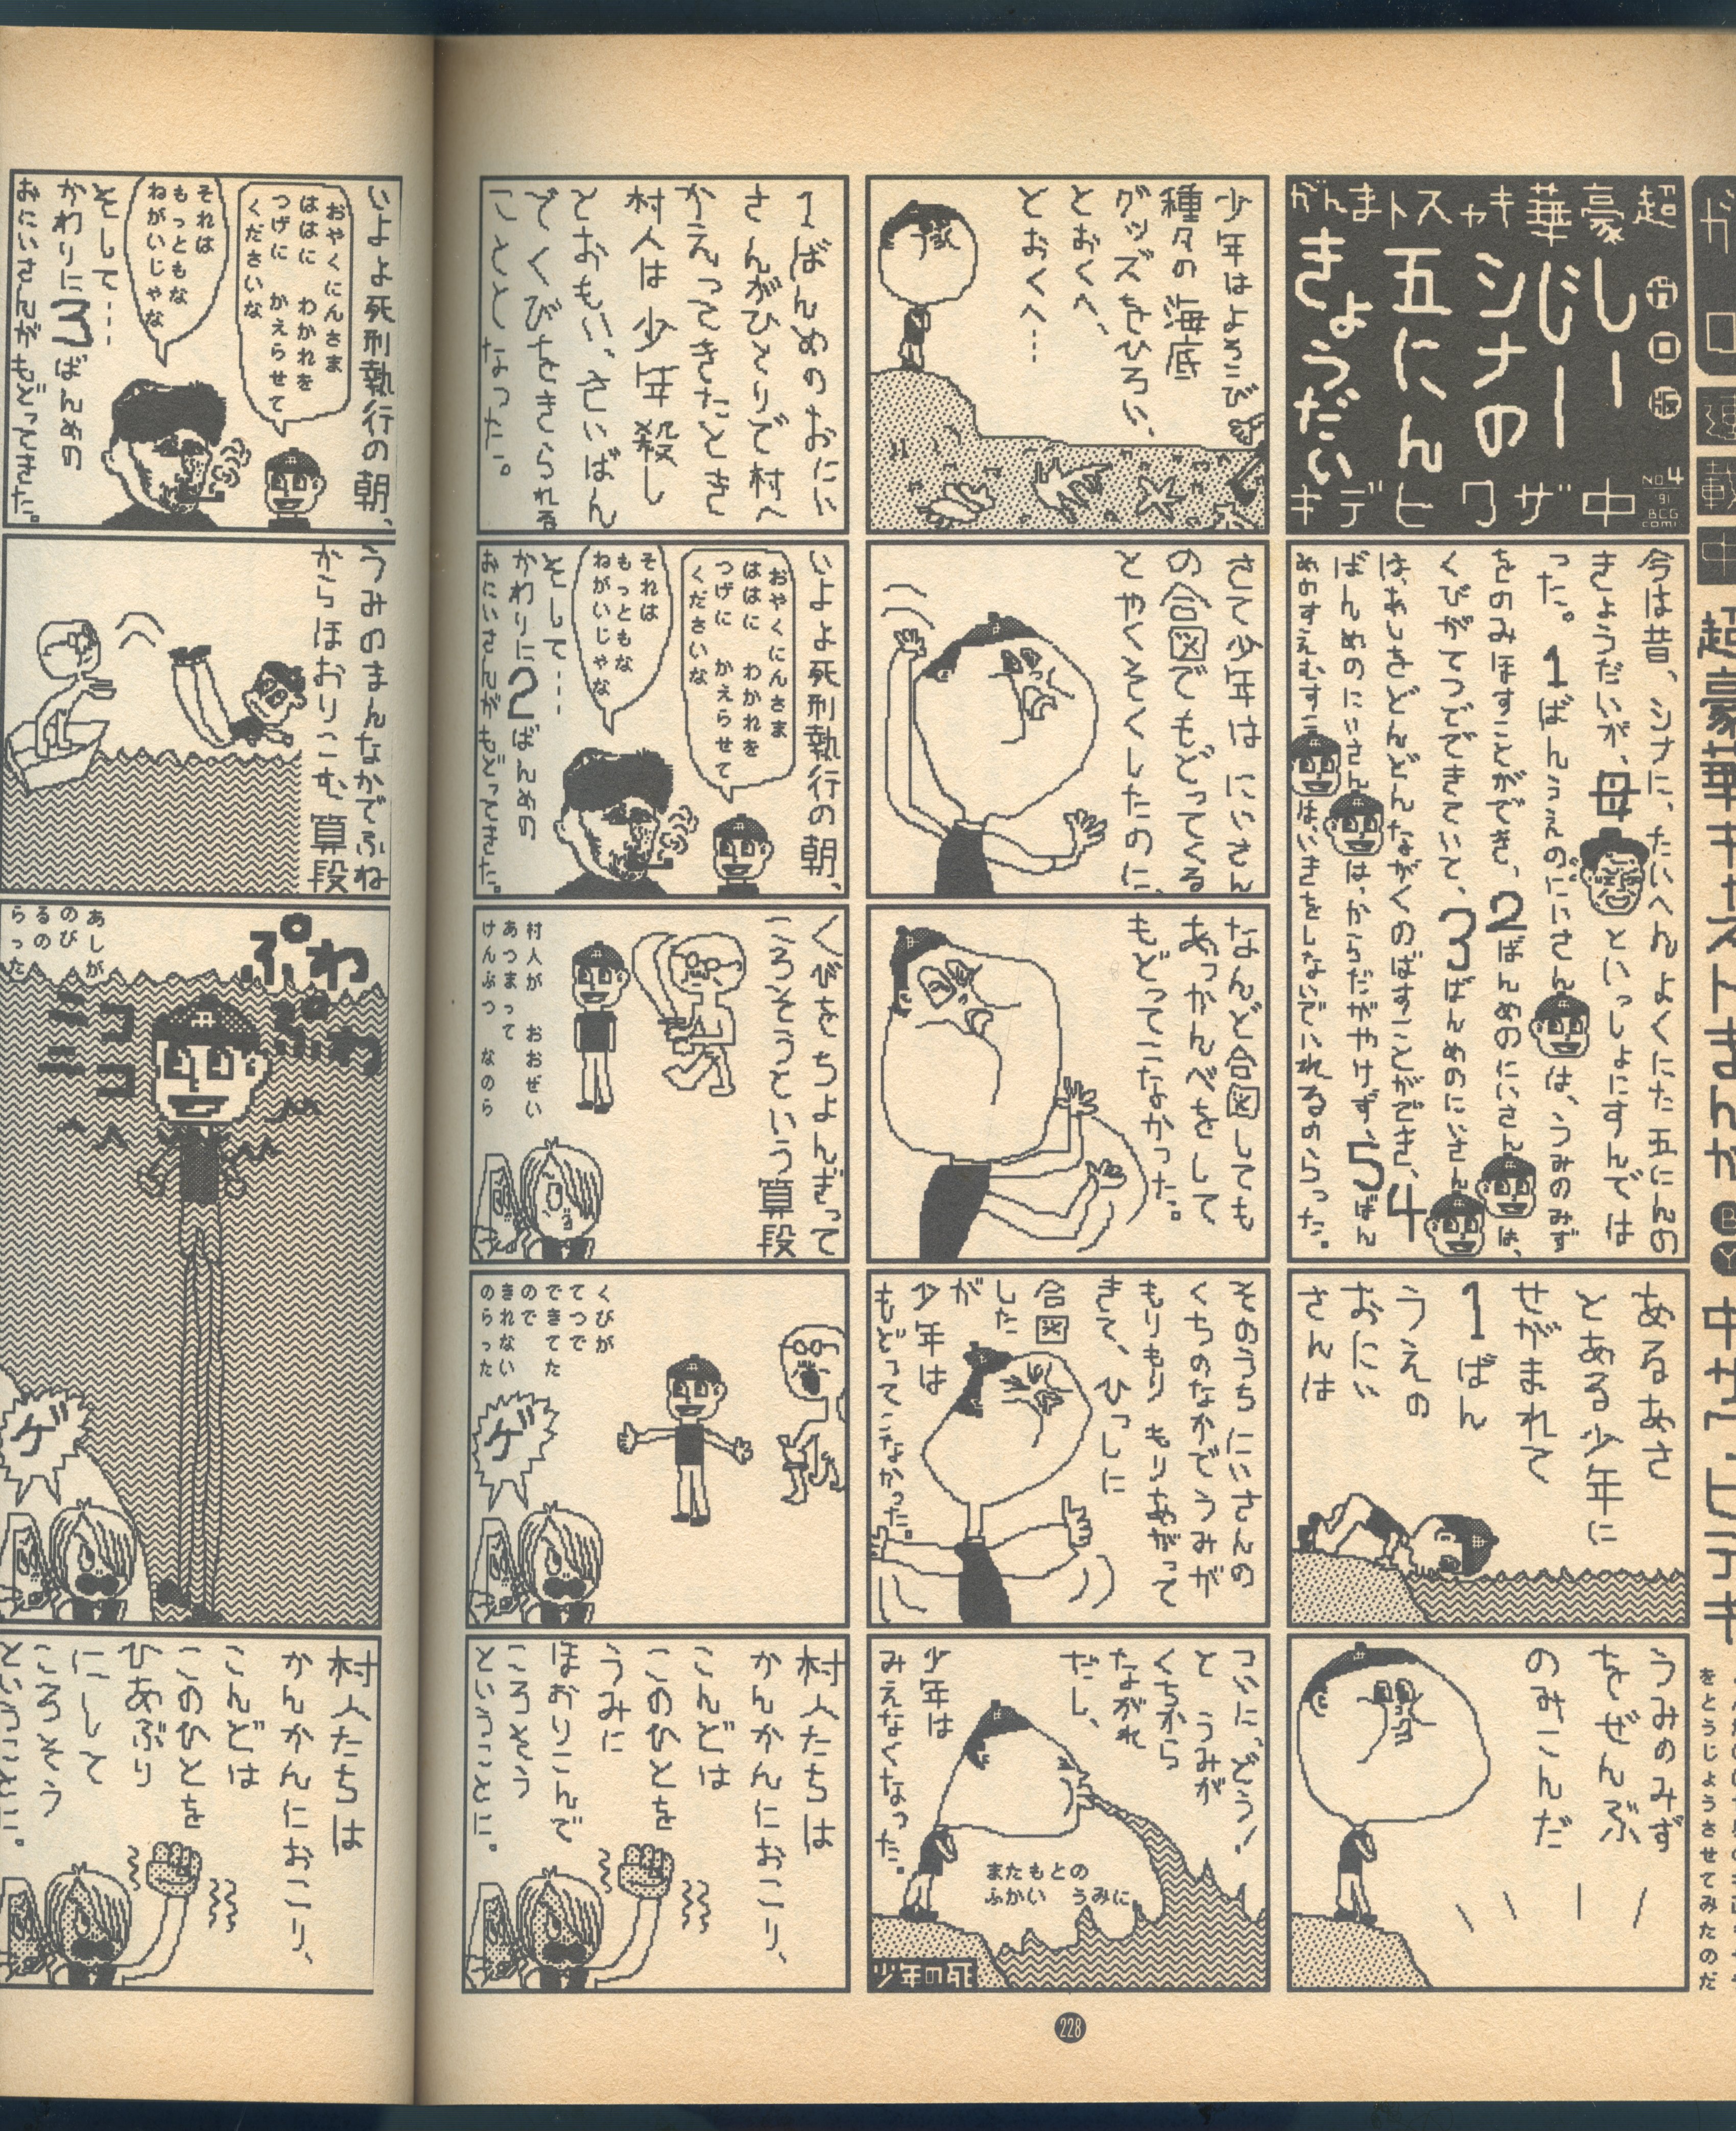 超豪華キャストまんが
ガロ版
しー
じー
シナの
五にん
きょうだい
中ザワヒデキ
NO4
'91
BCG
comi
今は昔、シナに、たいへんよくにた五にんの
きょうだいが、母といっしょにすんでは
った。1ばんうえのにいさんは、うみのみず
をのみほすことができ、2ばんめのにいさんは、
くびがてつでできていて、3ばんめのにいさん
はあしをどんどんながくのばすことができ、4
ばんめのにいさんは、からだがやけず、5ばん
めのすえむすこは、いきをしないでいれるのらった。
あるあさ
とある少年に
せがまれて
1ばん
うえの
おにい
さんは
うみのみず
をぜんぶ
のみこんだ
少年はよろこび
種々の海底
グッズをひろい、
とおくへ、
とおくへ…
さて少年はにいさん
の合図でもどってくる
とやくそくしたのに、
なんど合図しても
あっかんべをして
もどってこなかった。
そのうちにいさんの
くちのなかでうみが
もりもりもりあがって
きて、ひっしに
合図
した
が
少年は
もどってこなかった。
ついに、どう!
とうみが
くちから
ながれ
だし、
少年は
みえなくなった。
またもとの
ふかい うみに
少年の死
1ばんめのおにい
さんがひとりで村へ
かえってきたとき
村人は少年殺し
とおもい、さいばん
でくびをきられる
こととなった。
いよいよ死刑執行の朝、
おやくにんさま
ははに わかれを
つげに かえらせて
くださいな
それは
もっともな
ねがいじゃな
そして‥‥
かわりに2ばんめの
おにいさんがもどってきた。
くびをちょんぎって
ころそうという算段
村人が おおぜい
あつまって
けんぶつ なのら
くびが
てつで
できてた
ので
きれない
のらった
ゲ
村人たちは
かんかんにおこり、
こんどは
このひとを
うみに
ほおりこんで
ころそう
ということに。
いよいよ死刑執行の朝、
おやくにんさま
ははに わかれを
つげに かえらせて
くださいな
それは
もっともな
ねがいじゃな
そして‥‥
かわりに3ばんめの
おにいさんがもどってきた。
うみのまんなかでふね
からほおりこむ算段
ぷわ
ぷわ
ニコ
ニコ
あしが
のび
るの
らった
ゲ
村人たちは
かんかんにおこり、
こんどは
このひとを
ひあぶり
にして
ころそう
ということに。
228